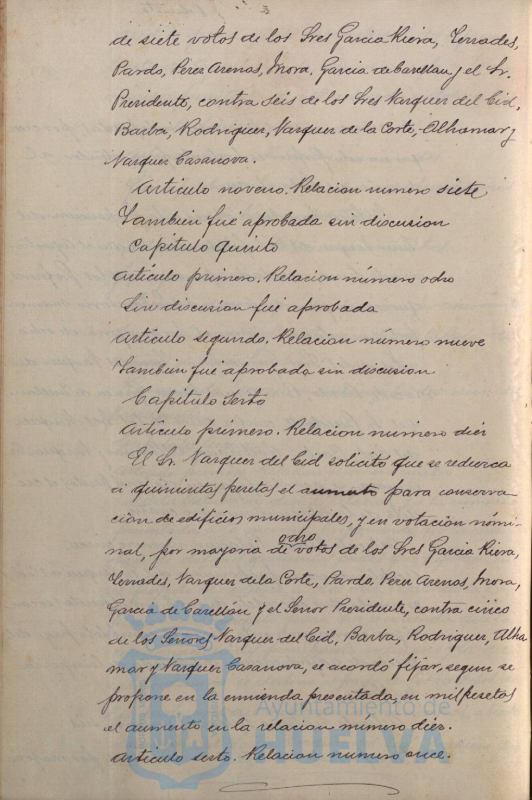 de siete votos de los Sres Garcia Riera, Terrades,
Pardo, Perez Arenas, Mora, Garcia de Carellan y el Sr.
Presidente, contra seis de los Sres Vazquez del Cid,
Barba, Rodriguez, Vazquez de la Corte, Alhamar y
Vazquez Casanova.
Articulo noveno. Relacion numero siete
Tambien fué aprobada sin discusion
Capitulo Quinto
Articulo primero. Relacion número ocho
Sin discusion fué aprobada
Articulo segundo. Relacion número nueve
Tambien fué aprobada sin discusion
Capitulo Sexto
Articulo primero. Relacion numero diez
El Sr. Vazquez del Cid solicitó que se reduzca
á quinientas pesetas el aumento para conserva
cion de edificios municipales, y en votacion nómi-
nal, por mayoria de ocho votos de los Sres Garcia Riera,
Terrades, Vazquez de la Corte, Pardo, Perez Arenas, Mora,
Garcia de Carellán y el Señor Presidente, contra cinco
de los Señores Vazquez del Cid, Barba, Rodriguez, Alha
mar y Vazquez Casanova, se acordó fijar, segun se
propone en la emienda presentada, en mil pesetas
el aumento en la relacion número diez.
Articulo sexto. Relacion numero once.
Ayuntamiento de
HUELVA